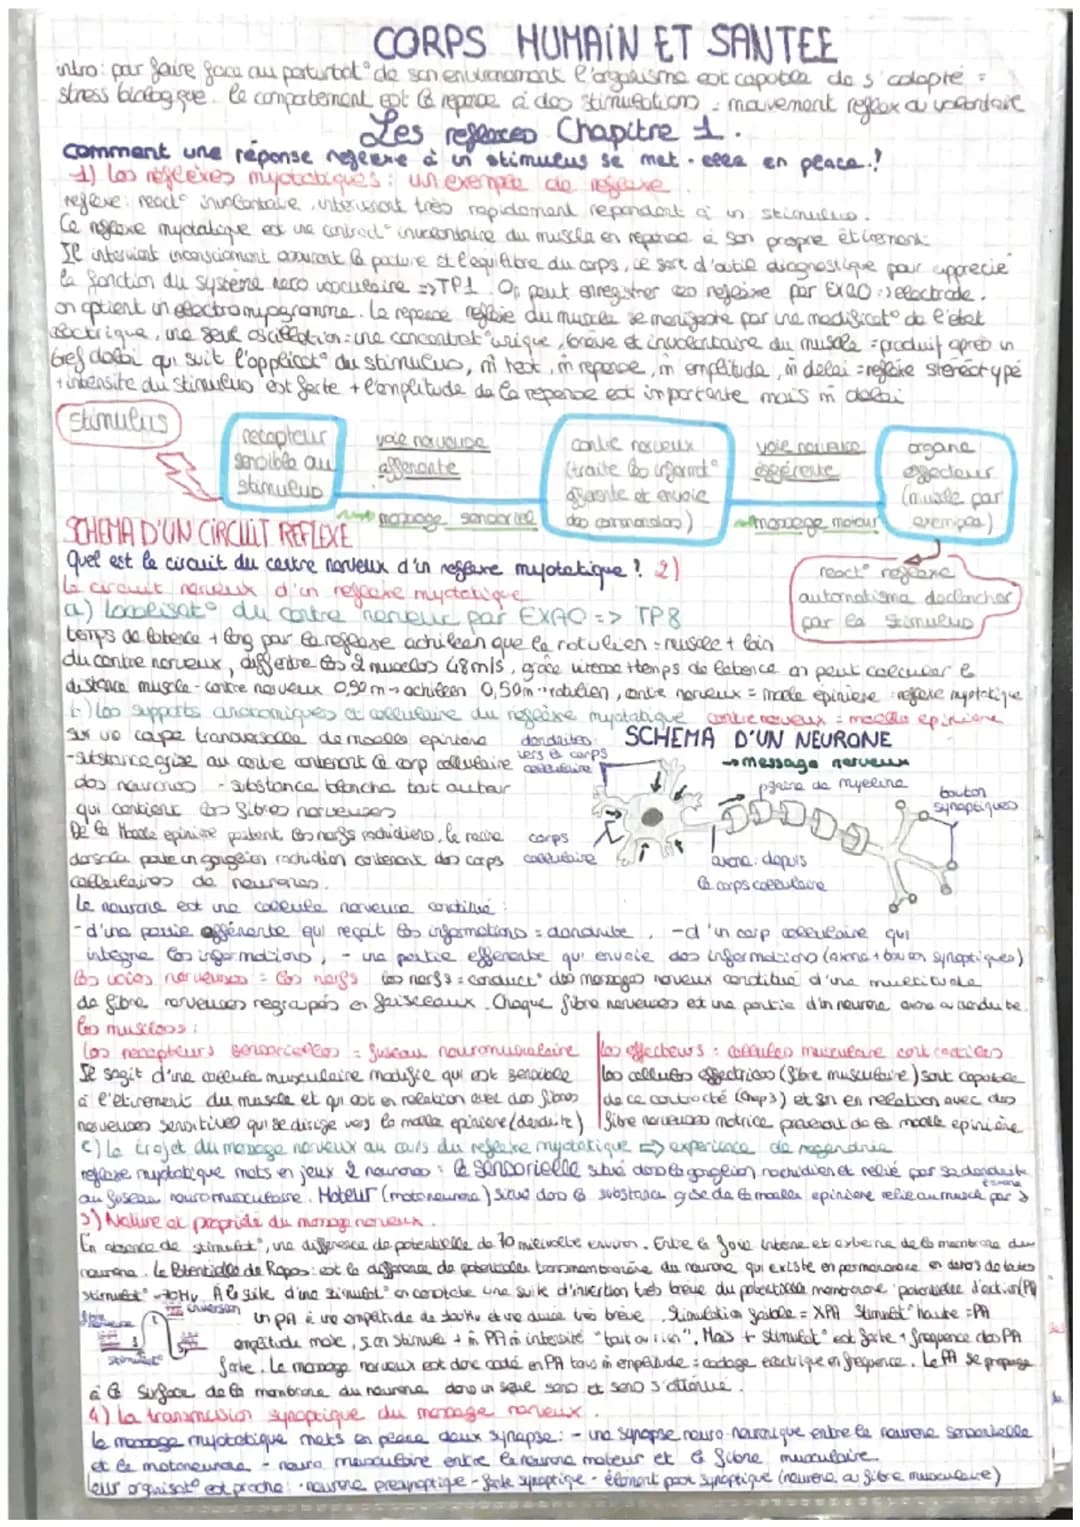 CORPS HUMAIN ET SANTEE
intro: pour faire face au perturbat° de son environement l'organisme est capable de s'adapté =
stress biologique. le comportement est la reponse à des stimulations = mouvement reflex ou volontaire
Les reflexes Chapitre 1.
comment une réponse reflexe à un stimulus se met-elle en place?
1) Les réflexes myotatiques: un exemple de reflexe
reflexe: react° involontaire, intervenant très rapidement repondant à un stimulus.
Ce reflexe myotatique est une contract° involontaire du muscle en reponse à son propre étirement.
Il intervient inconsciament assurant la posture et l'equilibre du corps, ce sert d'outil diagnostique pour apprecié
la fonction du système =>TP1. On peut enregistrer ces reflexe par EXAO => electrode.
on optient un electromyogramme. La reponse reflexe du muscle se manifeste par une modificat° de l'état
électrique, une seul oscillation = une contract° unique, brève et involontaire du muscle = produit après un
bref delai qui suit l'applicat° du stimulus, m̂ react, m̂ reponse, m̂ emplitude, m̂ delai = reflexe stéréotypé
+ intensité du stimulus est forte + l'amplitude de la reponse est importante mais m̂ delai
Stimulus
recepteur sensible au stimulus
voie nerveuse afferente
message sensoriel
centre nerveux (traite les informat° afferente et envoie des commandes)
voie nerveuse éfférente
message moteur
organe effecteur (muscle par exemple)
SCHEMA D'UN CIRCUIT REFLEXE
react° reflexe automatisme declancher par la stimulus
Quel est le circuit du centre nerveux d'un reflexe myotatique? 2)
Le circuit nerveux d'un reflexe myotatique
a) Localisat° du centre nerveux par EXAO => TP8
temps de latence + long pour le reflexe achileen que le rotulien = muscle + loin
du centre nerveux, differtre les 2 muscles 48m/s, grâce vitesse + temps de latence on peut calculer la
distance muscle-centre nerveux 0,90m → achileen 0,50m → rotulien, centre nerveux = moelle epiniere reflexe myotatique
b) les supports anatomiques et cellulaire du reflexe myotatique centre nerveux = moelle epiniere
SCHEMA D'UN NEURONE
sur un coupe transversalle de moelle epiniere
-substance grise au centre contenent le corp cellulaire
des neurones - substance blanche tout autour
qui contient les fibres nerveuses
De la Moelle epinière partent les nerfs rachidiens, le racine
dorsale porte un ganglion rachidien contenant des corps
cellulaires de neurones.
dendrites vers le corps cellulaire
→ message nerveux
gaine de myeline
bouton synaptiques
corps cellulaire
axone: depuis le corps cellulaire
Le neurone est une cellule nerveuse constitué:
-d'une partie afférente qui reçoit les informations = dendrite, -d'un corp cellulaire qui
integre les informations, - une partie efferente qui envoie des informations (axone + bouton synaptiques)
Les voies nerveuses = les nerfs les nerfs = conduct° des messages nerveux constitué d'une multitude
de fibre nerveuses regroupés en faisceaux. Chaque fibre nerveuses est une partie d'un neurone axone ou dendrite.
les muscles:
Les recepteurs sensorielles = fuseau neuromusculaire
Il sagit d'une cellule musculaire modifie qui est sensible
à l'étirement du muscle et qui est en relation avec des fibres
nerveuses sensitives qui se dirige vers la moelle epiniere (dendrite)
les effecteurs: cellules musculaire contractiles
les cellules effectrices (fibre musculaire) sont capable
de ce contracté (chap3) et sn en relation avec des
fibre nerveuses motrice provenant de la moelle epinière
c) Le trajet du message nerveux au cours du reflexe myotatique => experience de magendie
reflexe myotatique mets en jeux 2 neurones: le sensorielle situé dans le ganglion rachidien et relié par sa dendrite
au fuseau neuromusculaire. Moteur (motoneurone) situé dans la substance grise de la moelle epiniere relie au muscle par
3) Nature et propriété du message nerveux.
En absence de stimulat°, une difference de potentielle de 70 milivolte environ. Entre la face interne et externe de la membrane du
neurone. Le Potentielle de Repos: est la difference de potentielle transmembranaire du neurone qui existe en permanence en dehors de toutes
stimulat° -70Mv. A la suite d'une stimulat° on constate une suite d'invertion très breve du potentielle membranaire potentielle d'action (PA)
inversion
stimulat°
un PA à une emplitude de et une durée très brève. Stimulation faible = XPA Stimulat° haute = PA
emplitude max, "tout ou rien". Mais + stimulat° est forte + frequence des PA
forte. Le message nerveux est donc codé en PA tous m̂ emplitude = codage electrique en frequence. Le PA se propage
à la surface de la membrane du neurone dans un seul sens et sans s'atténué.
4) La transmission synaptique du message nerveux.
le message myotatique mets en place deux synapse: - une synapse neuro-neuronique entre le neurone sensorielle
et le motoneurone - neuro musculaire entre le neurone moteur et la fibre musculaire.
leur organisat° est proche: - neurone presynaptique - fente synaptique - élément post synaptique (neurone ou fibre musculaire)